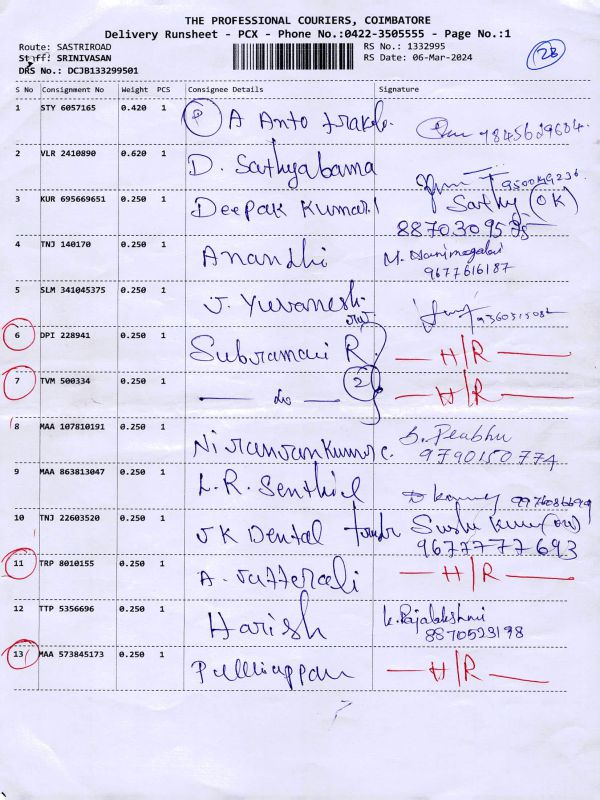 THE PROFESSIONAL COURIERS, COIMBATORE
Delivery Runsheet - PCX - Phone No.:0422-3505555 - Page No.:1
Route: SASTRIROAD RS No.: 1332995
Staff: SRINIVASAN RS Date: 06-Mar-2024 28
DRS No.: DCJB133299501
S No Consignment No Weight PCS Consignee Details Signature
1 STY 6057165 0.420 1 P A Anto 9845629684.
2 VLR 2410890 0.620 1 D. Sathyabama 9500049236
3 KUR 695669651 0.250 1 Deepak Kumar Sathy (OK)
8870309575
4 TNJ 140170 0.250 1 Anandhi M.
9677616187
5 SLM 341045375 0.250 1 J. Yuvanesh 9360315082
6 DPI 228941 0.250 1 Subramani R H/R
7 TVM 500334 0.250 1 do 2 H/R
8 MAA 107810191 0.250 1 Niranjankumar B. Prabhu
9790150774
9 MAA 863813047 0.250 1 L.R. Senthil
10 TNJ 22603520 0.250 1 JK Dental
9677777693
11 TRP 8010155 0.250 1 A. Jafferali H/R
12 TTP 5356696 0.250 1 Harish K. Rajalakshmi
8870523198
13 MAA 573845173 0.250 1 H/R